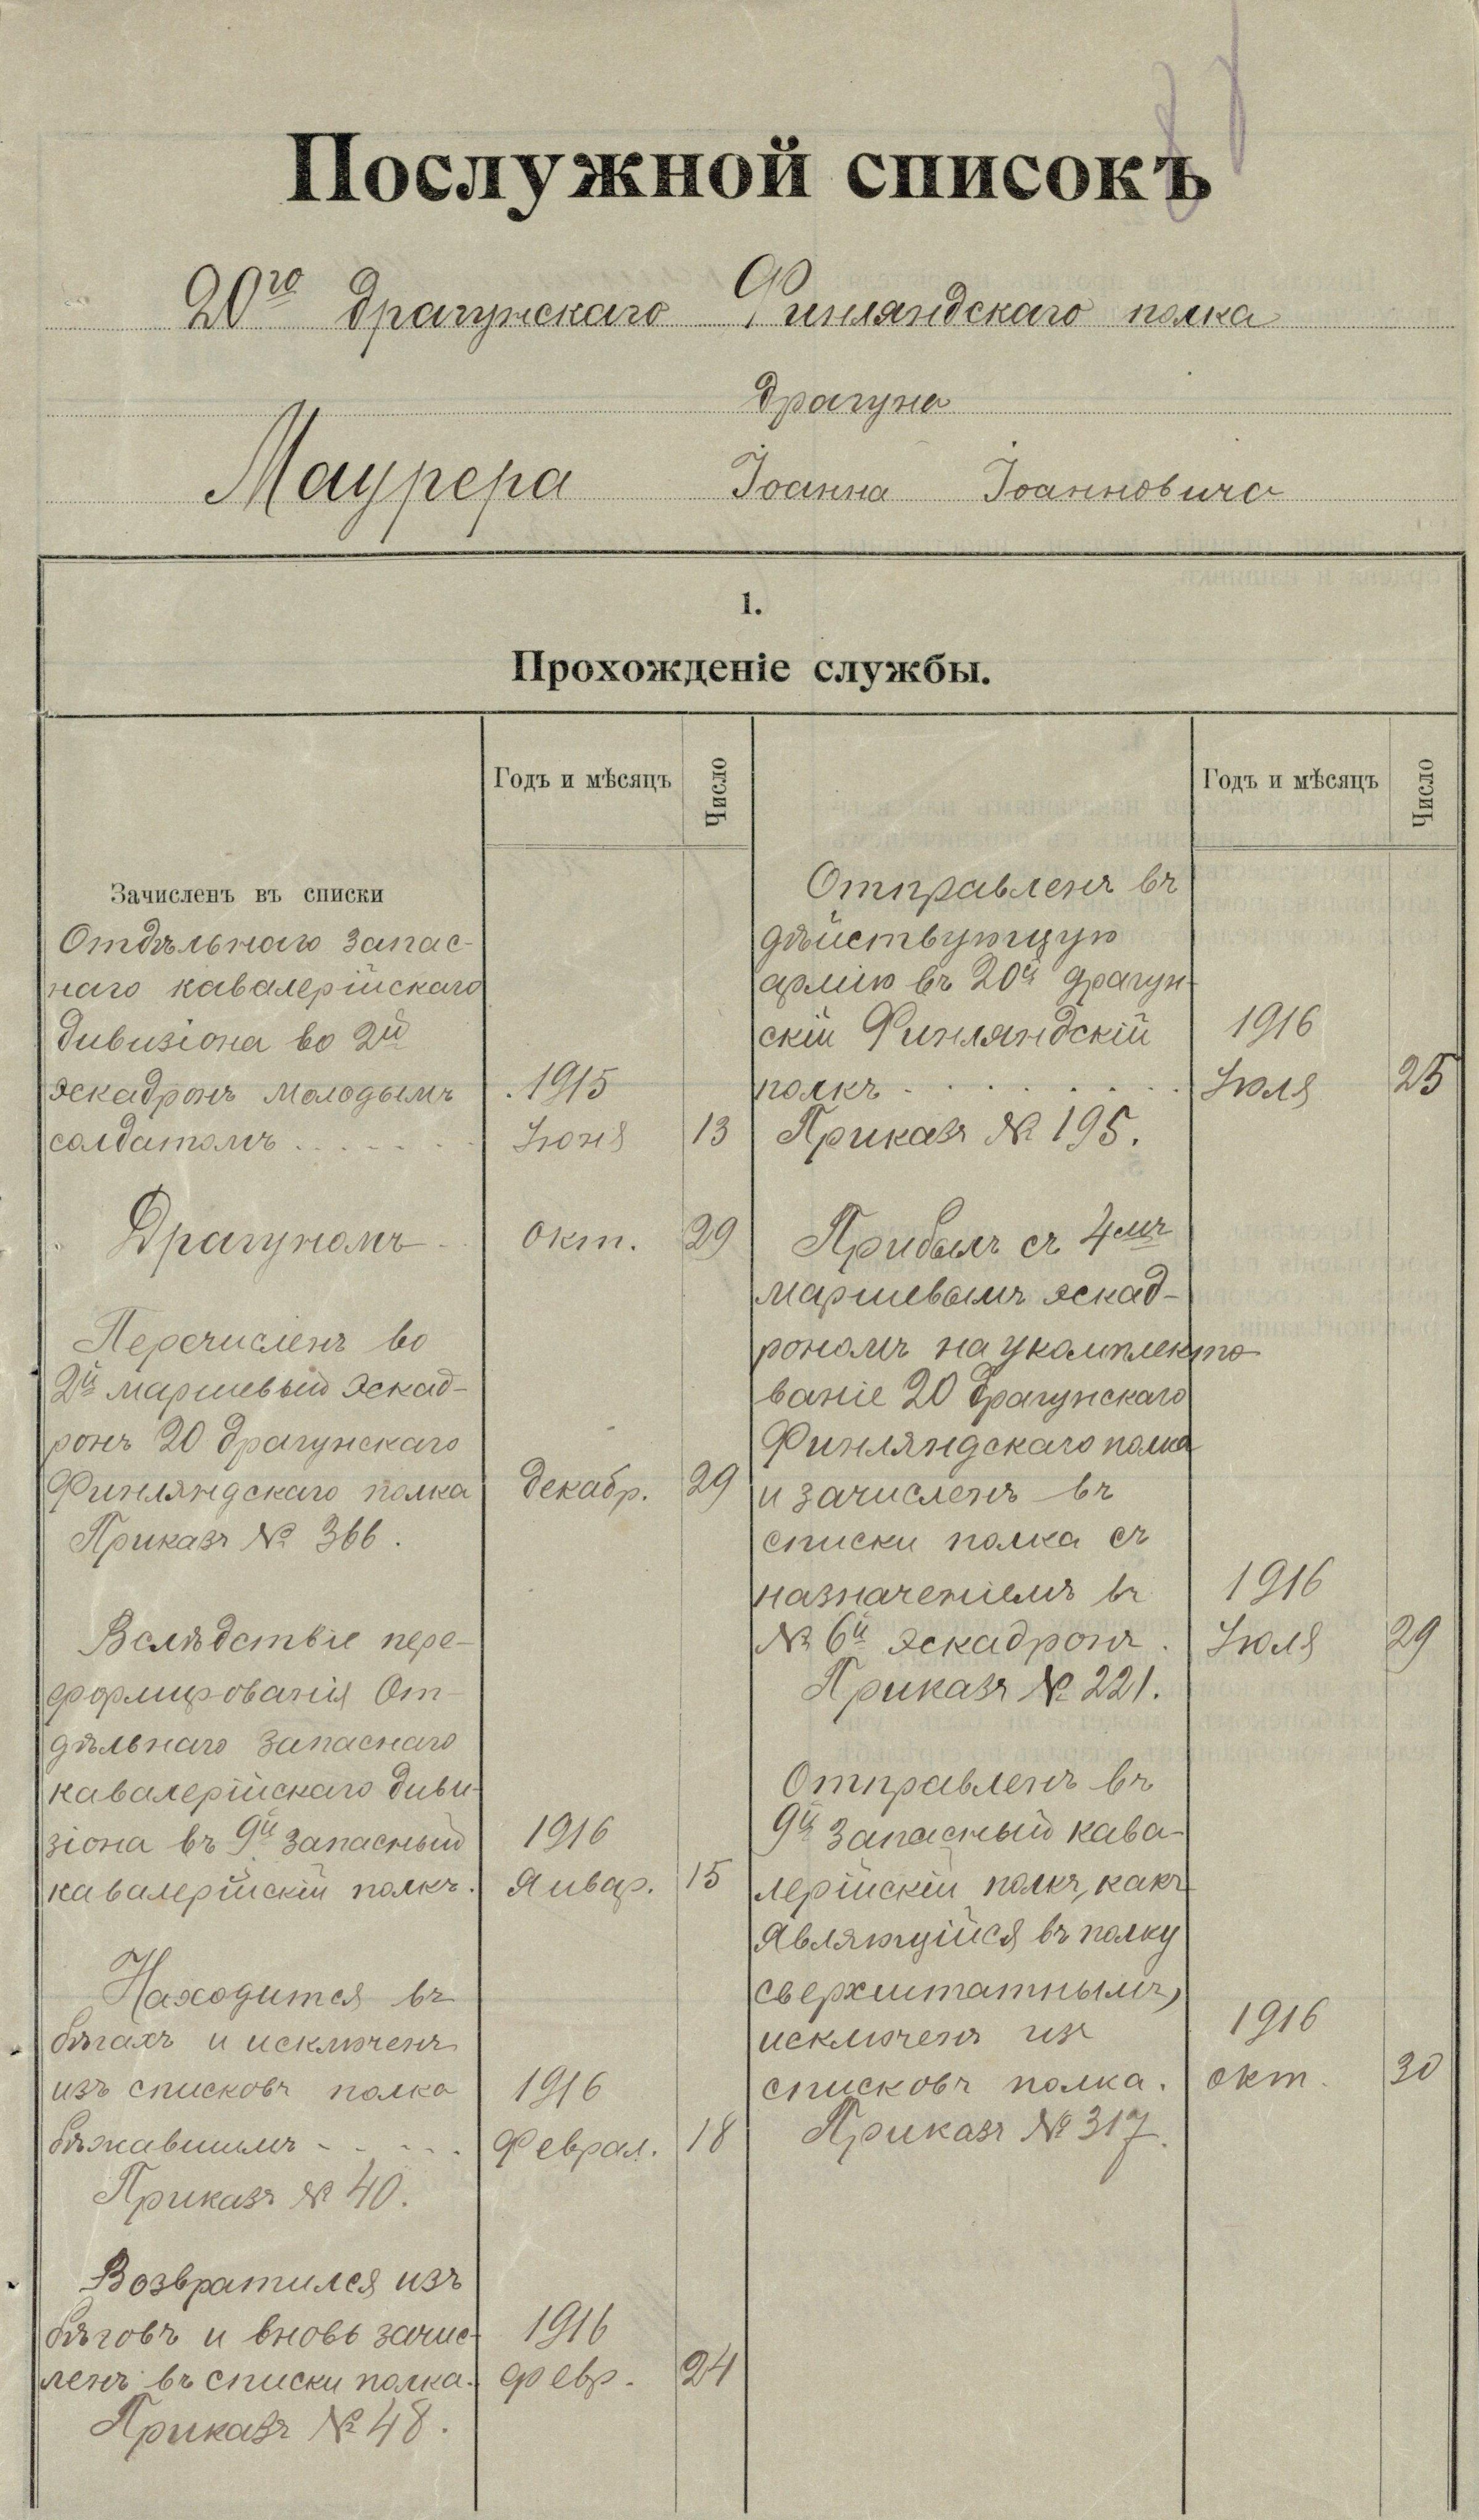 Послужной списокъ
20го драгунскаго Финляндскаго полка
драгуна
Маурера Іоанна Іоанновича
1.
Прохожденіе службы.
Годъ и мѣсяцъ
Число
Зачисленъ въ списки
Отдѣльнаго запас-
наго кавалерійскаго
дивизіона во 2й
эскадронъ молодымъ 1915
солдатомъ . . . . . Іюня 13
Драгуномъ окт. 29
Перечисленъ во
2й маршевый эскад-
ронъ 20 драгунскаго
Финляндскаго полка декабр. 29
Приказъ № 366.
Вслѣдствіе пере-
формированія От-
дѣльнаго запаснаго
кавалерійскаго диви-
зіона въ 9й запасный 1916
кавалерійскій полкъ. Январ. 15
Находится въ
бѣгахъ и исключенъ
изъ списковъ полка 1916
бѣжавшимъ - - - - - Феврал. 18
Приказъ № 40.
Возвратился изъ
бѣговъ и вновь зачис- 1916
ленъ въ списки полка. февр. 24
Приказъ № 48.
Годъ и мѣсяцъ
Число
Отправленъ въ
дѣйствующую
армію въ 20й драгун-
скій Финляндскій 1916
полкъ . . . . . . . . Іюля 25
Приказъ № 195.
Прибылъ съ 4мъ
маршевымъ эскад-
рономъ на укомплекто
ваніе 20 драгунскаго
Финляндскаго полка
и зачисленъ въ
списки полка съ
назначеніемъ въ 1916
№ 6й эскадронъ . Іюля 29
Приказъ № 221.
Отправленъ въ
9й запасный кава-
лерійскій полкъ, какъ
являющійся въ полку
сверхштатнымъ,
исключенъ изъ 1916
списковъ полка. окт. 30
Приказъ № 317.